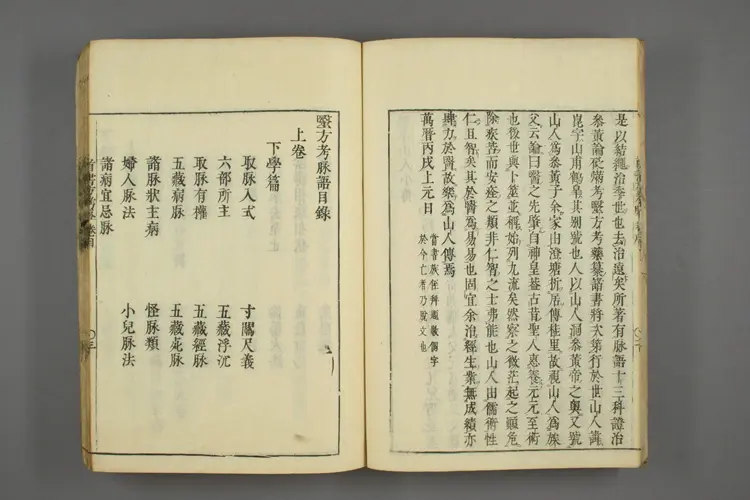 是以結繩治季世也去治遠矣所著有脉語十三科證治
參黃論砭焫考醫方考藥纂諸書將次第行於世山人諱
崑字山甫鶴皐其別號也人以山人洞參黃帝之奧又號
山人爲參黃子余家由澄塘折居傳桂里故視山人爲族
父云論曰醫之先肇自神皇葢古昔聖人惠養元元至術
也後世與卜筮並稱始列九流矣然察之微茫起之顛危
除疾苦而安全之類非仁智之士弗能也山人由儒術性
仁且智矣其於醫爲易易也固宜余治經生業無成績亦
肆力於醫故樂爲山人傳焉
萬曆丙戌上元日
於今亡者乃脫文也
醫方考脉語目錄
上卷
下學篇
取脉入式
寸關尺義
六部所主
五藏浮沉
取脉有權
五藏經脉
五藏病脉
五藏死脉
諸脉狀主病
怪脉類
婦人脉法
小兒脉法
諸病宜忌脉